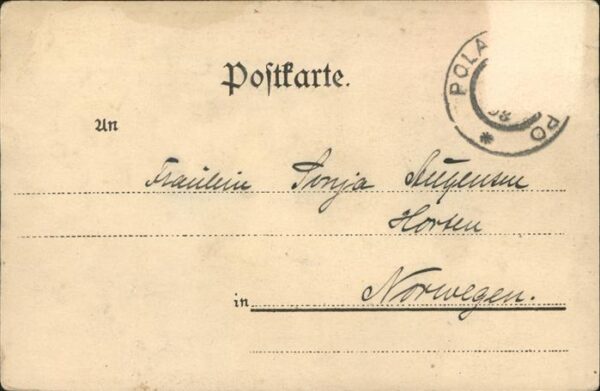 Postkarte.
POLA
PO
98
An
Fräulein Sonja
Horten
in Norwegen.